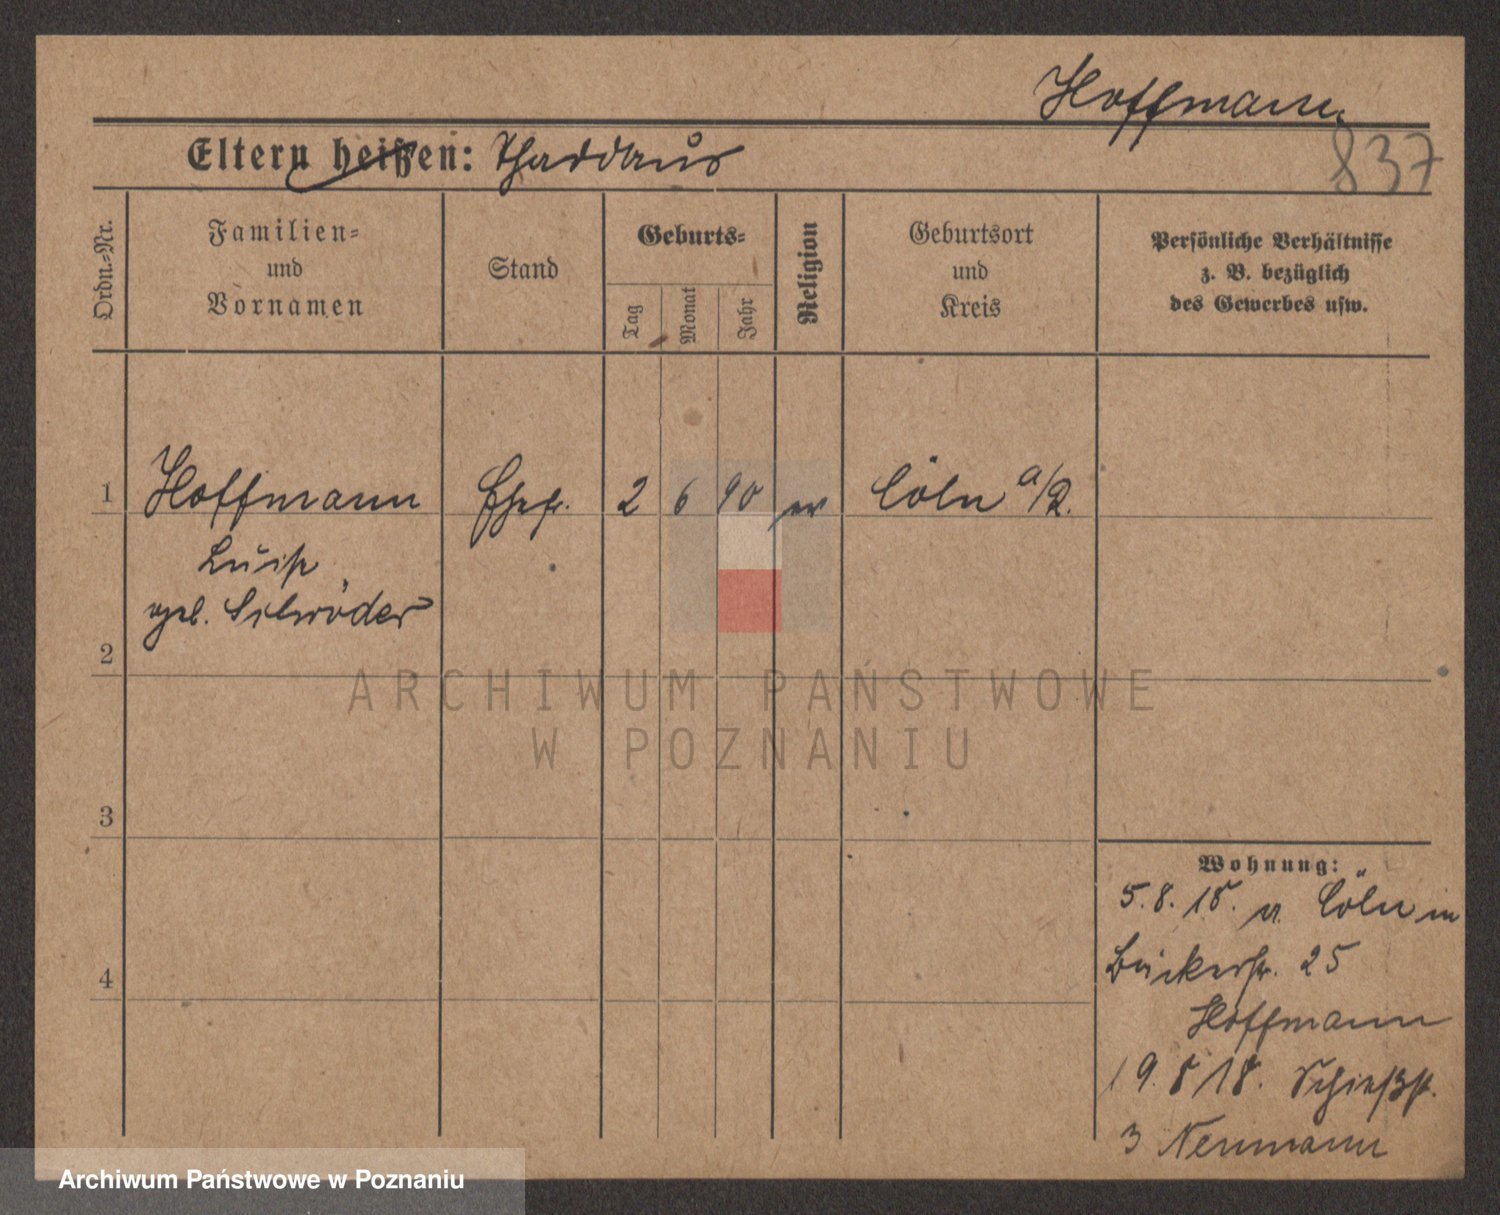 Hoffmann
Eltern heißen: Thaddäus
837
Ordn.-Nr.
Familien-
und
Vornamen
Stand
Geburts-
Tag
Monat
Jahr
Religion
Geburtsort
und
Kreis
Persönliche Verhältnisse
z. B. bezüglich
des Gewerbes usw.
1 Hoffmann Ehefr. 2 6 90 ev Cöln a/R.
Luise
geb. Schröder
2
ARCHIWUM PAŃSTWOWE
W POZNANIU
3
Wohnung:
5.8.18. v. Cöln in
4
Bäckerstr. 25
Hoffmann
19.8 18. Schießst.
3 Neumann
Archiwum Państwowe w Poznaniu